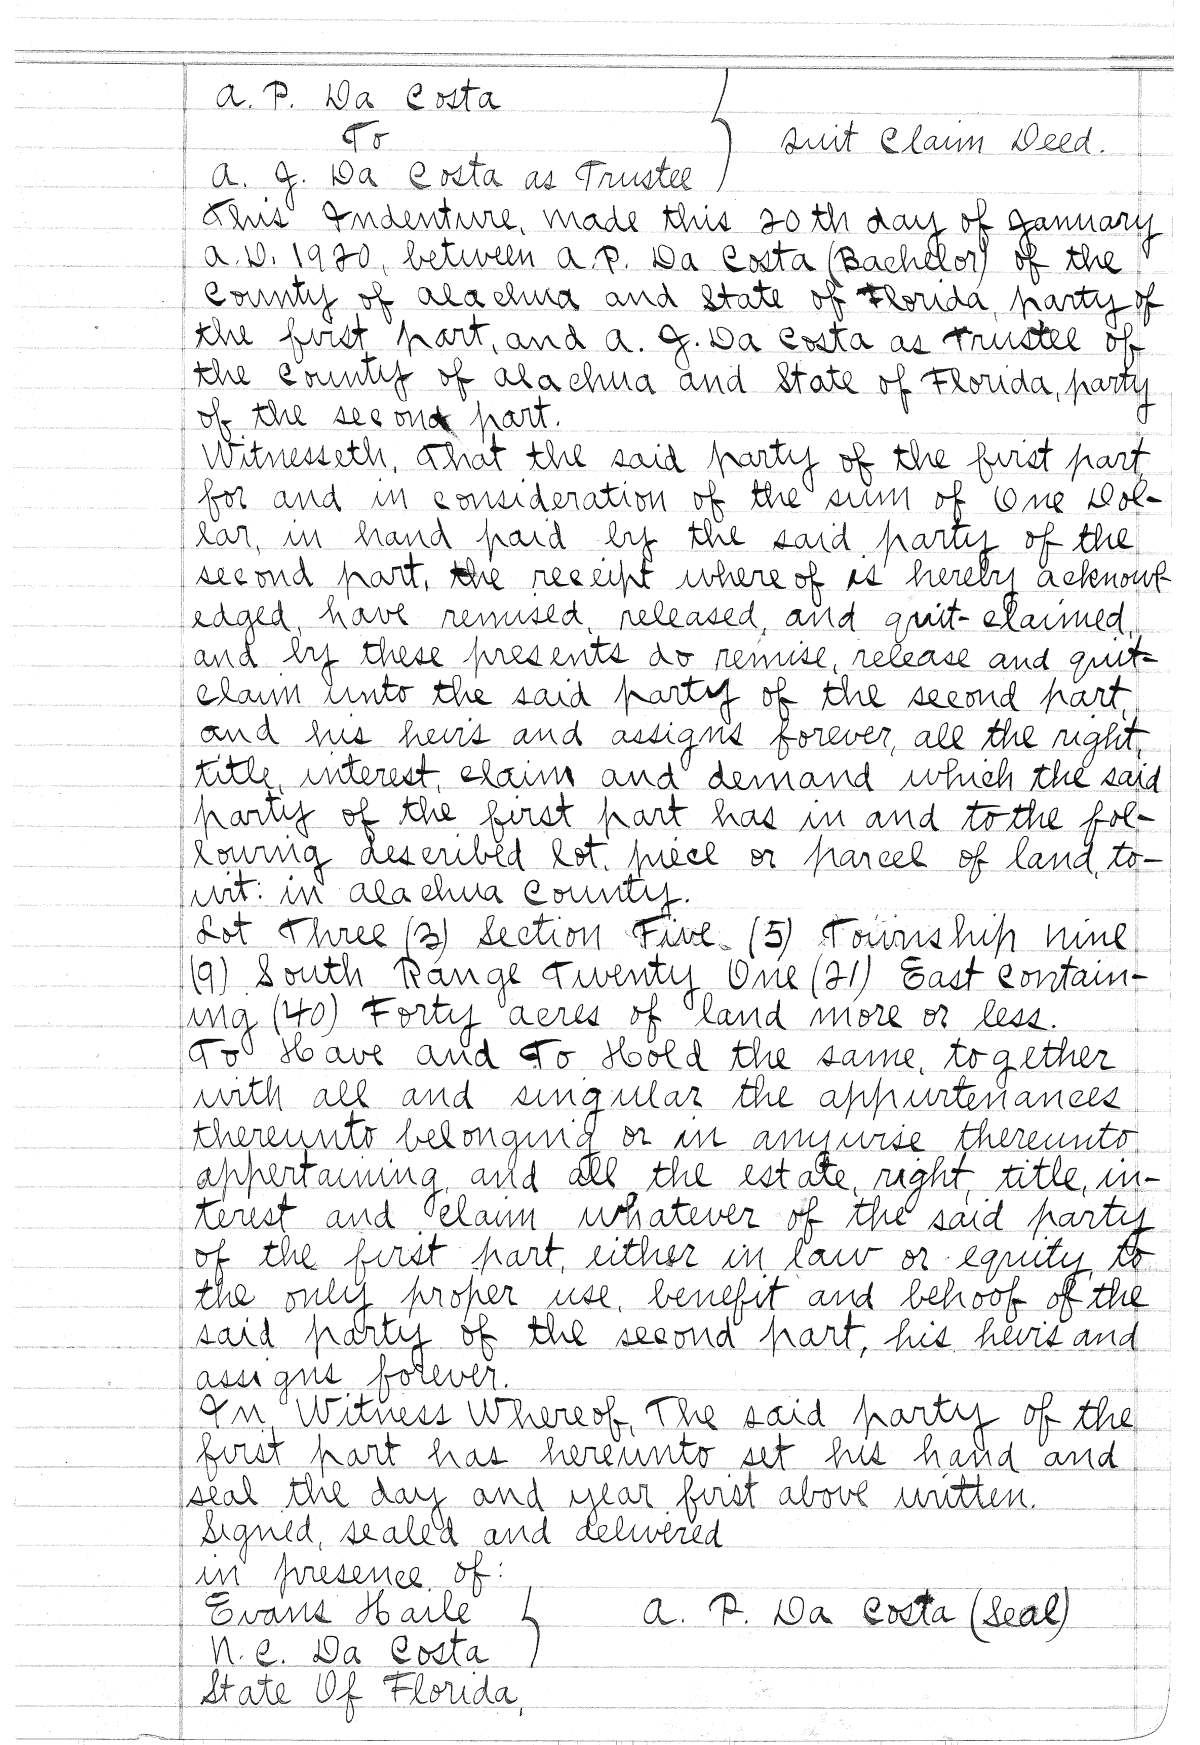 A. P. Da Costa
To
Quit Claim Deed.
A. G. Da Costa as Trustee
This Indenture, made this 20th day of January
A.D. 1920, between A.P. Da Costa (Bachelor) of the
County of Alachua and State of Florida, party of
the first part, and A. G. Da Costa as Trustee of
the County of Alachua and State of Florida, party
of the second part.
Witnesseth, That the said party of the first part
for and in consideration of the sum of One Dol-
lar, in hand paid by the said party of the
second part, the receipt whereof is hereby acknowl-
edged, have remised, released, and quit-claimed,
and by these presents do remise, release and quit-
claim unto the said party of the second part,
and his heirs and assigns forever, all the right,
title, interest, claim and demand which the said
party of the first part has in and to the fol-
lowing described lot, piece or parcel of land, to-
wit: in Alachua County.
Lot Three (3) Section Five (5) Township nine
(9) South Range Twenty One (21) East contain-
ing (40) Forty acres of land more or less.
To Have and To Hold the same, together
with all and singular the appurtenances
thereunto belonging or in anywise thereunto
appertaining, and all the estate, right, title, in-
terest and claim whatever of the said party
of the first part, either in law or equity, to
the only proper use, benefit and behoof of the
said party of the second part, his heirs and
assigns forever.
In Witness Whereof, The said party of the
first part has hereunto set his hand and
seal the day and year first above written.
Signed, sealed and delivered
in presence of:
Evans Haile A. P. Da Costa (Seal)
N. C. Da Costa
State Of Florida,